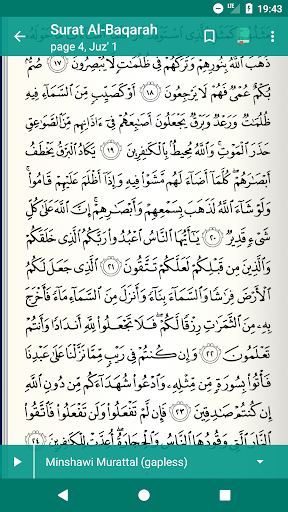 LTE 19:43
Surat Al-Baqarah
page 4, Juz' 1
ذَهَبَ ٱللَّهُ بِنُورِهِمْ وَتَرَكَهُمْ فِى ظُلُمَٰتٍ لَّا يُبْصِرُونَ ١٧ صُمٌّۢ
بُكْمٌ عُمْىٌ فَهُمْ لَا يَرْجِعُونَ ١٨ أَوْ كَصَيِّبٍ مِّنَ ٱلسَّمَآءِ فِيهِ
ظُلُمَٰتٌ وَرَعْدٌ وَبَرْقٌ يَجْعَلُونَ أَصَٰبِعَهُمْ فِىٓ ءَاذَانِهِم مِّنَ ٱلصَّوَٰعِقِ
حَذَرَ ٱلْمَوْتِ ۚ وَٱللَّهُ مُحِيطٌۢ بِٱلْكَٰفِرِينَ ١٩ يَكَادُ ٱلْبَرْقُ يَخْطَفُ
أَبْصَٰرَهُمْ ۖ كُلَّمَآ أَضَآءَ لَهُم مَّشَوْا۟ فِيهِ وَإِذَآ أَظْلَمَ عَلَيْهِمْ قَامُوا۟ ۚ
وَلَوْ شَآءَ ٱللَّهُ لَذَهَبَ بِسَمْعِهِمْ وَأَبْصَٰرِهِمْ ۚ إِنَّ ٱللَّهَ عَلَىٰ كُلِّ
شَىْءٍ قَدِيرٌ ٢٠ يَٰٓأَيُّهَا ٱلنَّاسُ ٱعْبُدُوا۟ رَبَّكُمُ ٱلَّذِى خَلَقَكُمْ
وَٱلَّذِينَ مِن قَبْلِكُمْ لَعَلَّكُمْ تَتَّقُونَ ٢١ ٱلَّذِى جَعَلَ لَكُمُ
ٱلْأَرْضَ فِرَٰشًا وَٱلسَّمَآءَ بِنَآءً وَأَنزَلَ مِنَ ٱلسَّمَآءِ مَآءً فَأَخْرَجَ
بِهِۦ مِنَ ٱلثَّمَرَٰتِ رِزْقًا لَّكُمْ ۖ فَلَا تَجْعَلُوا۟ لِلَّهِ أَندَادًا وَأَنتُمْ
تَعْلَمُونَ ٢٢ وَإِن كُنتُمْ فِى رَيْبٍ مِّمَّا نَزَّلْنَا عَلَىٰ عَبْدِنَا
فَأْتُوا۟ بِسُورَةٍ مِّن مِّثْلِهِۦ وَٱدْعُوا۟ شُهَدَآءَكُم مِّن دُونِ ٱللَّهِ
إِن كُنتُمْ صَٰدِقِينَ ٢٣ فَإِن لَّمْ تَفْعَلُوا۟ وَلَن تَفْعَلُوا۟ فَٱتَّقُوا۟
ٱلنَّارَ ٱلَّتِى وَقُودُهَا ٱلنَّاسُ وَٱلْحِجَارَةُ ۖ أُعِدَّتْ لِلْكَٰفِرِينَ ٢٤
Minshawi Murattal (gapless)